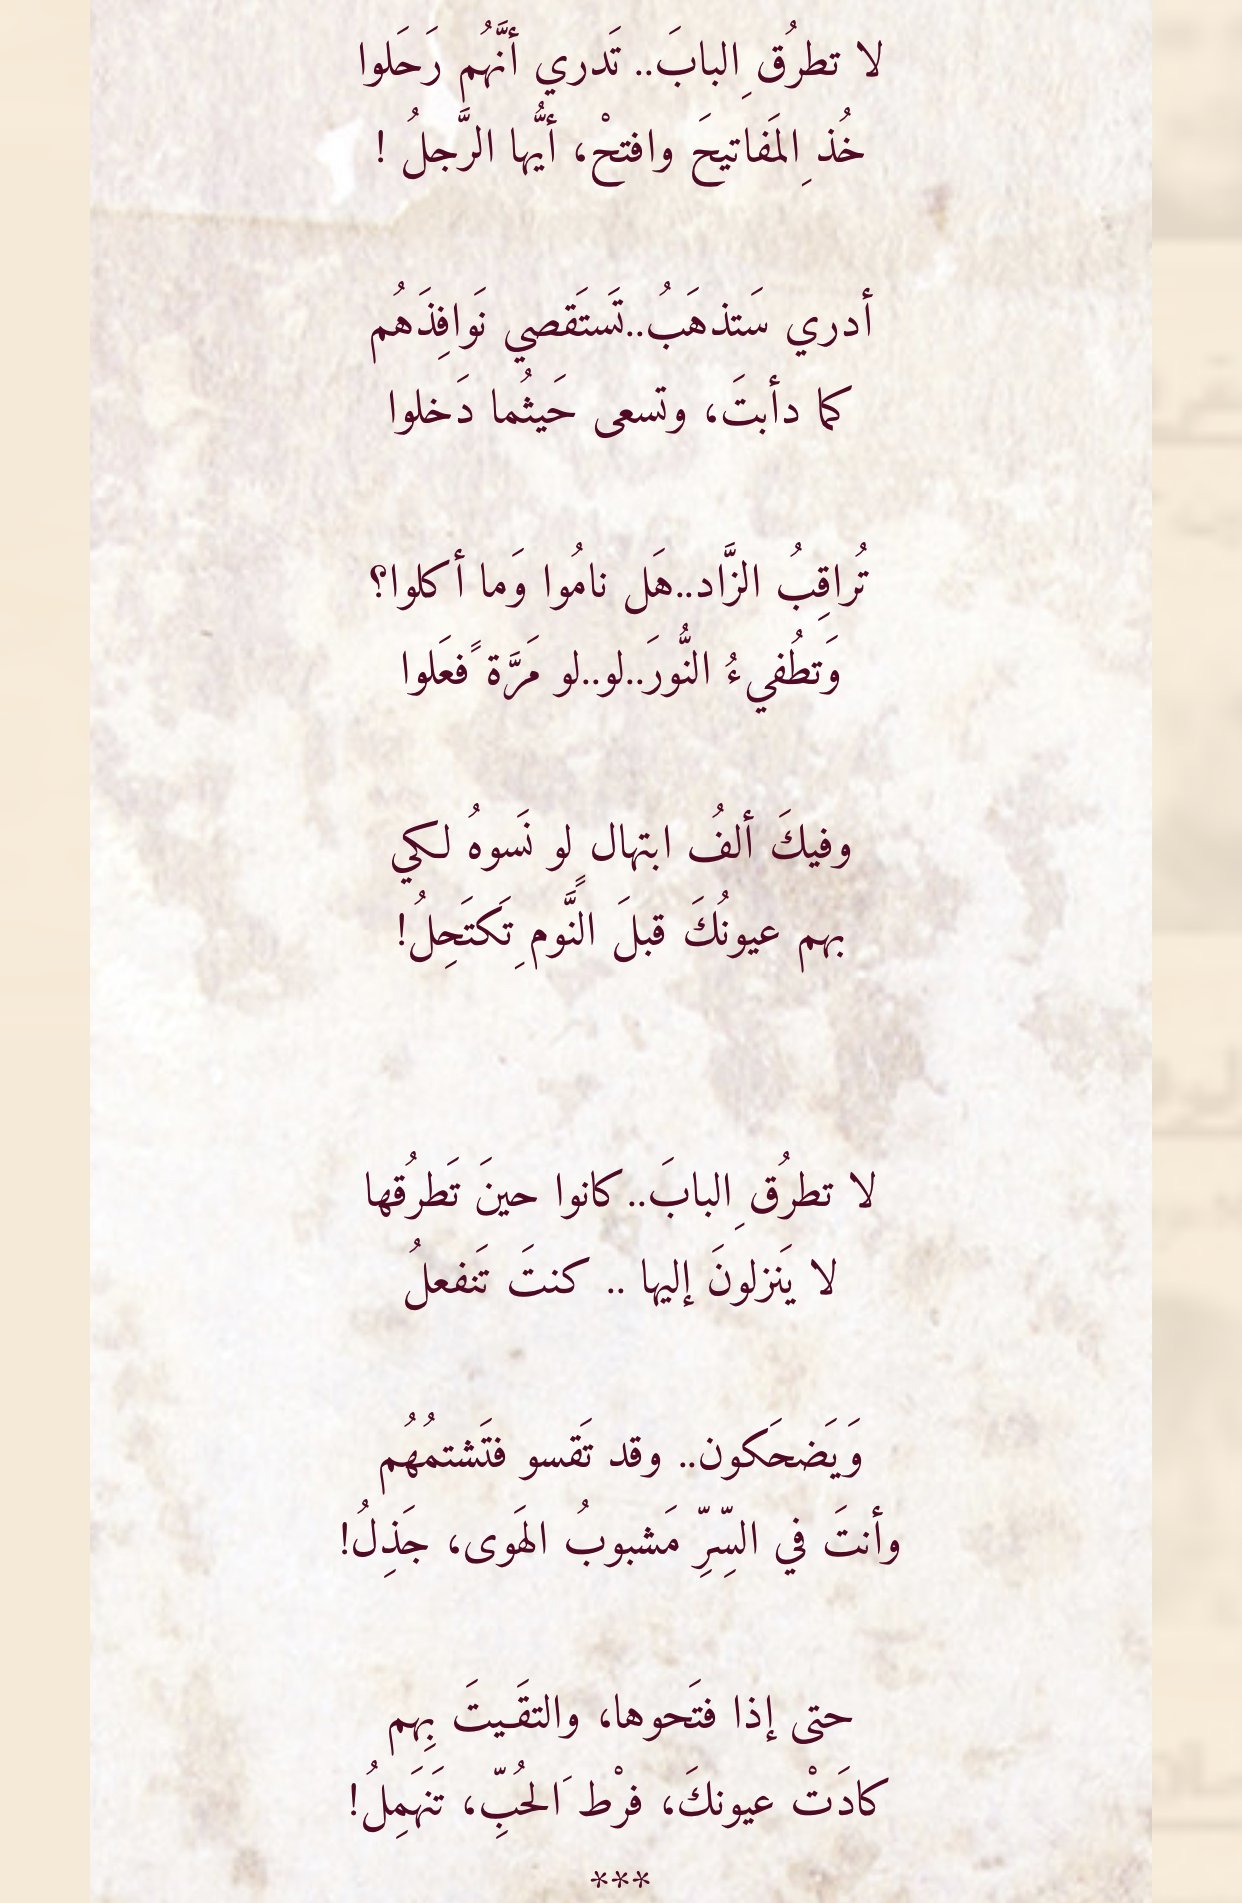 لا تطرُقِ البابَ.. تَدري أنَّهُم رَحَلوا
خُذِ المَفاتيحَ وافتحْ، أيُّها الرَّجلُ !
أدري سَتذهَبُ..تَستَقصي نَوافِذَهُم
كما دأبتَ، وتسعى حَيثُما دَخلوا
تُراقِبُ الزَّاد..هَل نامُوا وَما أكلوا؟
وَتطُفيءُ النُّورَ..لو..لو مَرَّة ًفعَلوا
وفيكَ ألفُ ابتهال ٍلو نَسوهُ لكي
بهم عيونُكَ قبلَ النَّوم ِتَكتَحِلُ!
لا تطرُق ِالبابَ..كانوا حينَ تَطرُقها
لا يَنزلونَ إليها .. كنتَ تَنفعلُ
وَيَضحَكون.. وقد تَقسو فتَشتمُهُم
وأنتَ في السِّرِّ مَشبوبُ الهَوى، جَذِلُ!
حتى إذا فتَحوها، والتقَـيتَ بِهم
كادَتْ عيونكَ، فرْط َالحُبِّ، تَنهَمِلُ!
***